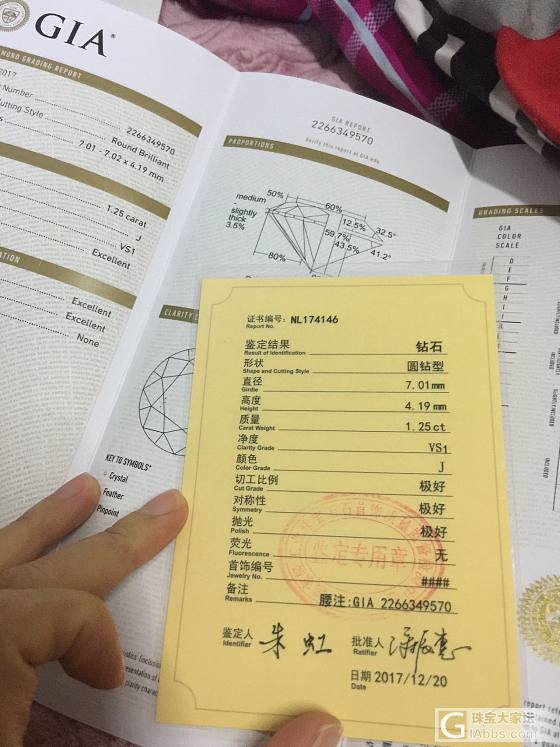 GIA®
MOND GRADING REPORT
2017
Number 2266349570
Cutting Style Round Brilliant
7.01 - 7.02 x 4.19 mm
1.25 carat
J
VS1
Excellent
ATION
Excellent
Excellent
None
GIA REPORT
2266349570
Verify this report at GIA.edu
PROPORTIONS
medium
-
slightly
thick
3.5%
50%
60%
12.5%
32.5°
59.7%
43.5%
41.2°
80%
CLARITY
KEY TO SYMBOLS*
Crystal
Feather
Pinpoint
GRADING SCALES
GIA
COLOR
SCALE
D
E
F
G
H
I
J
证书编号: NL174146
Report No.
鉴定结果 钻石
Result of Identification
形状 圆钻型
Shape and Cutting Style
直径 7.01mm
Girdle
高度 4.19 mm
Height
质量 1.25ct
Carat Weight
净度 VS1
Clarity Grade
颜色 J
Color Grade
切工比例 极好
Cut Grade
对称性 极好
Symmetry
抛光 极好
Polish
荧光 无
Fluorescence
首饰编号 ####
Jewelry No.
备注 腰注:GIA 2266349570
Remarks
鉴定专用章
鉴定人 朱虹
Identifier
批准人
Ratifier
日期 2017/12/20
Date
珠宝大家坛
GIAbbs.com